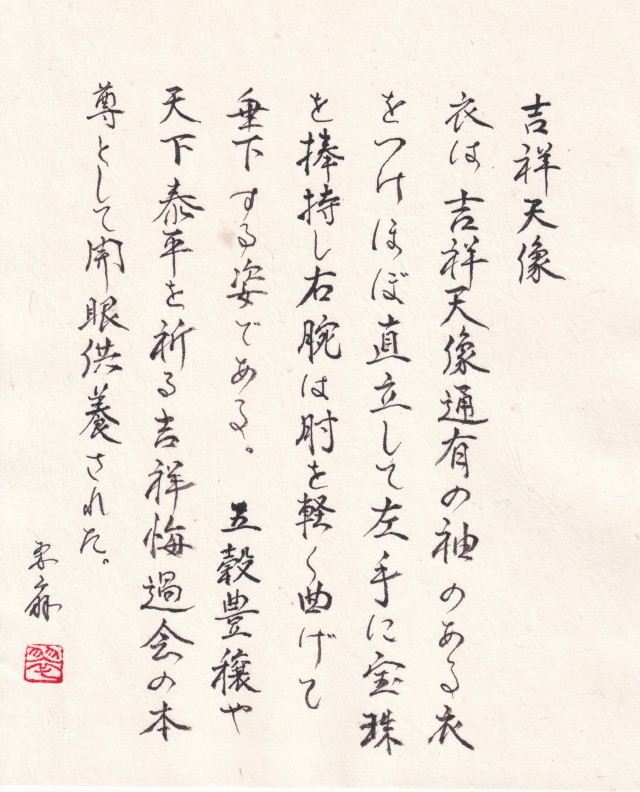 吉祥天像
衣は吉祥天像通有の袖のある衣
をつけほぼ直立して左手に宝珠
を捧持し右腕は肘を軽く曲げて
垂下する姿である。五穀豊穣や
天下泰平を祈る吉祥悔過会の本
尊として開眼供養された。